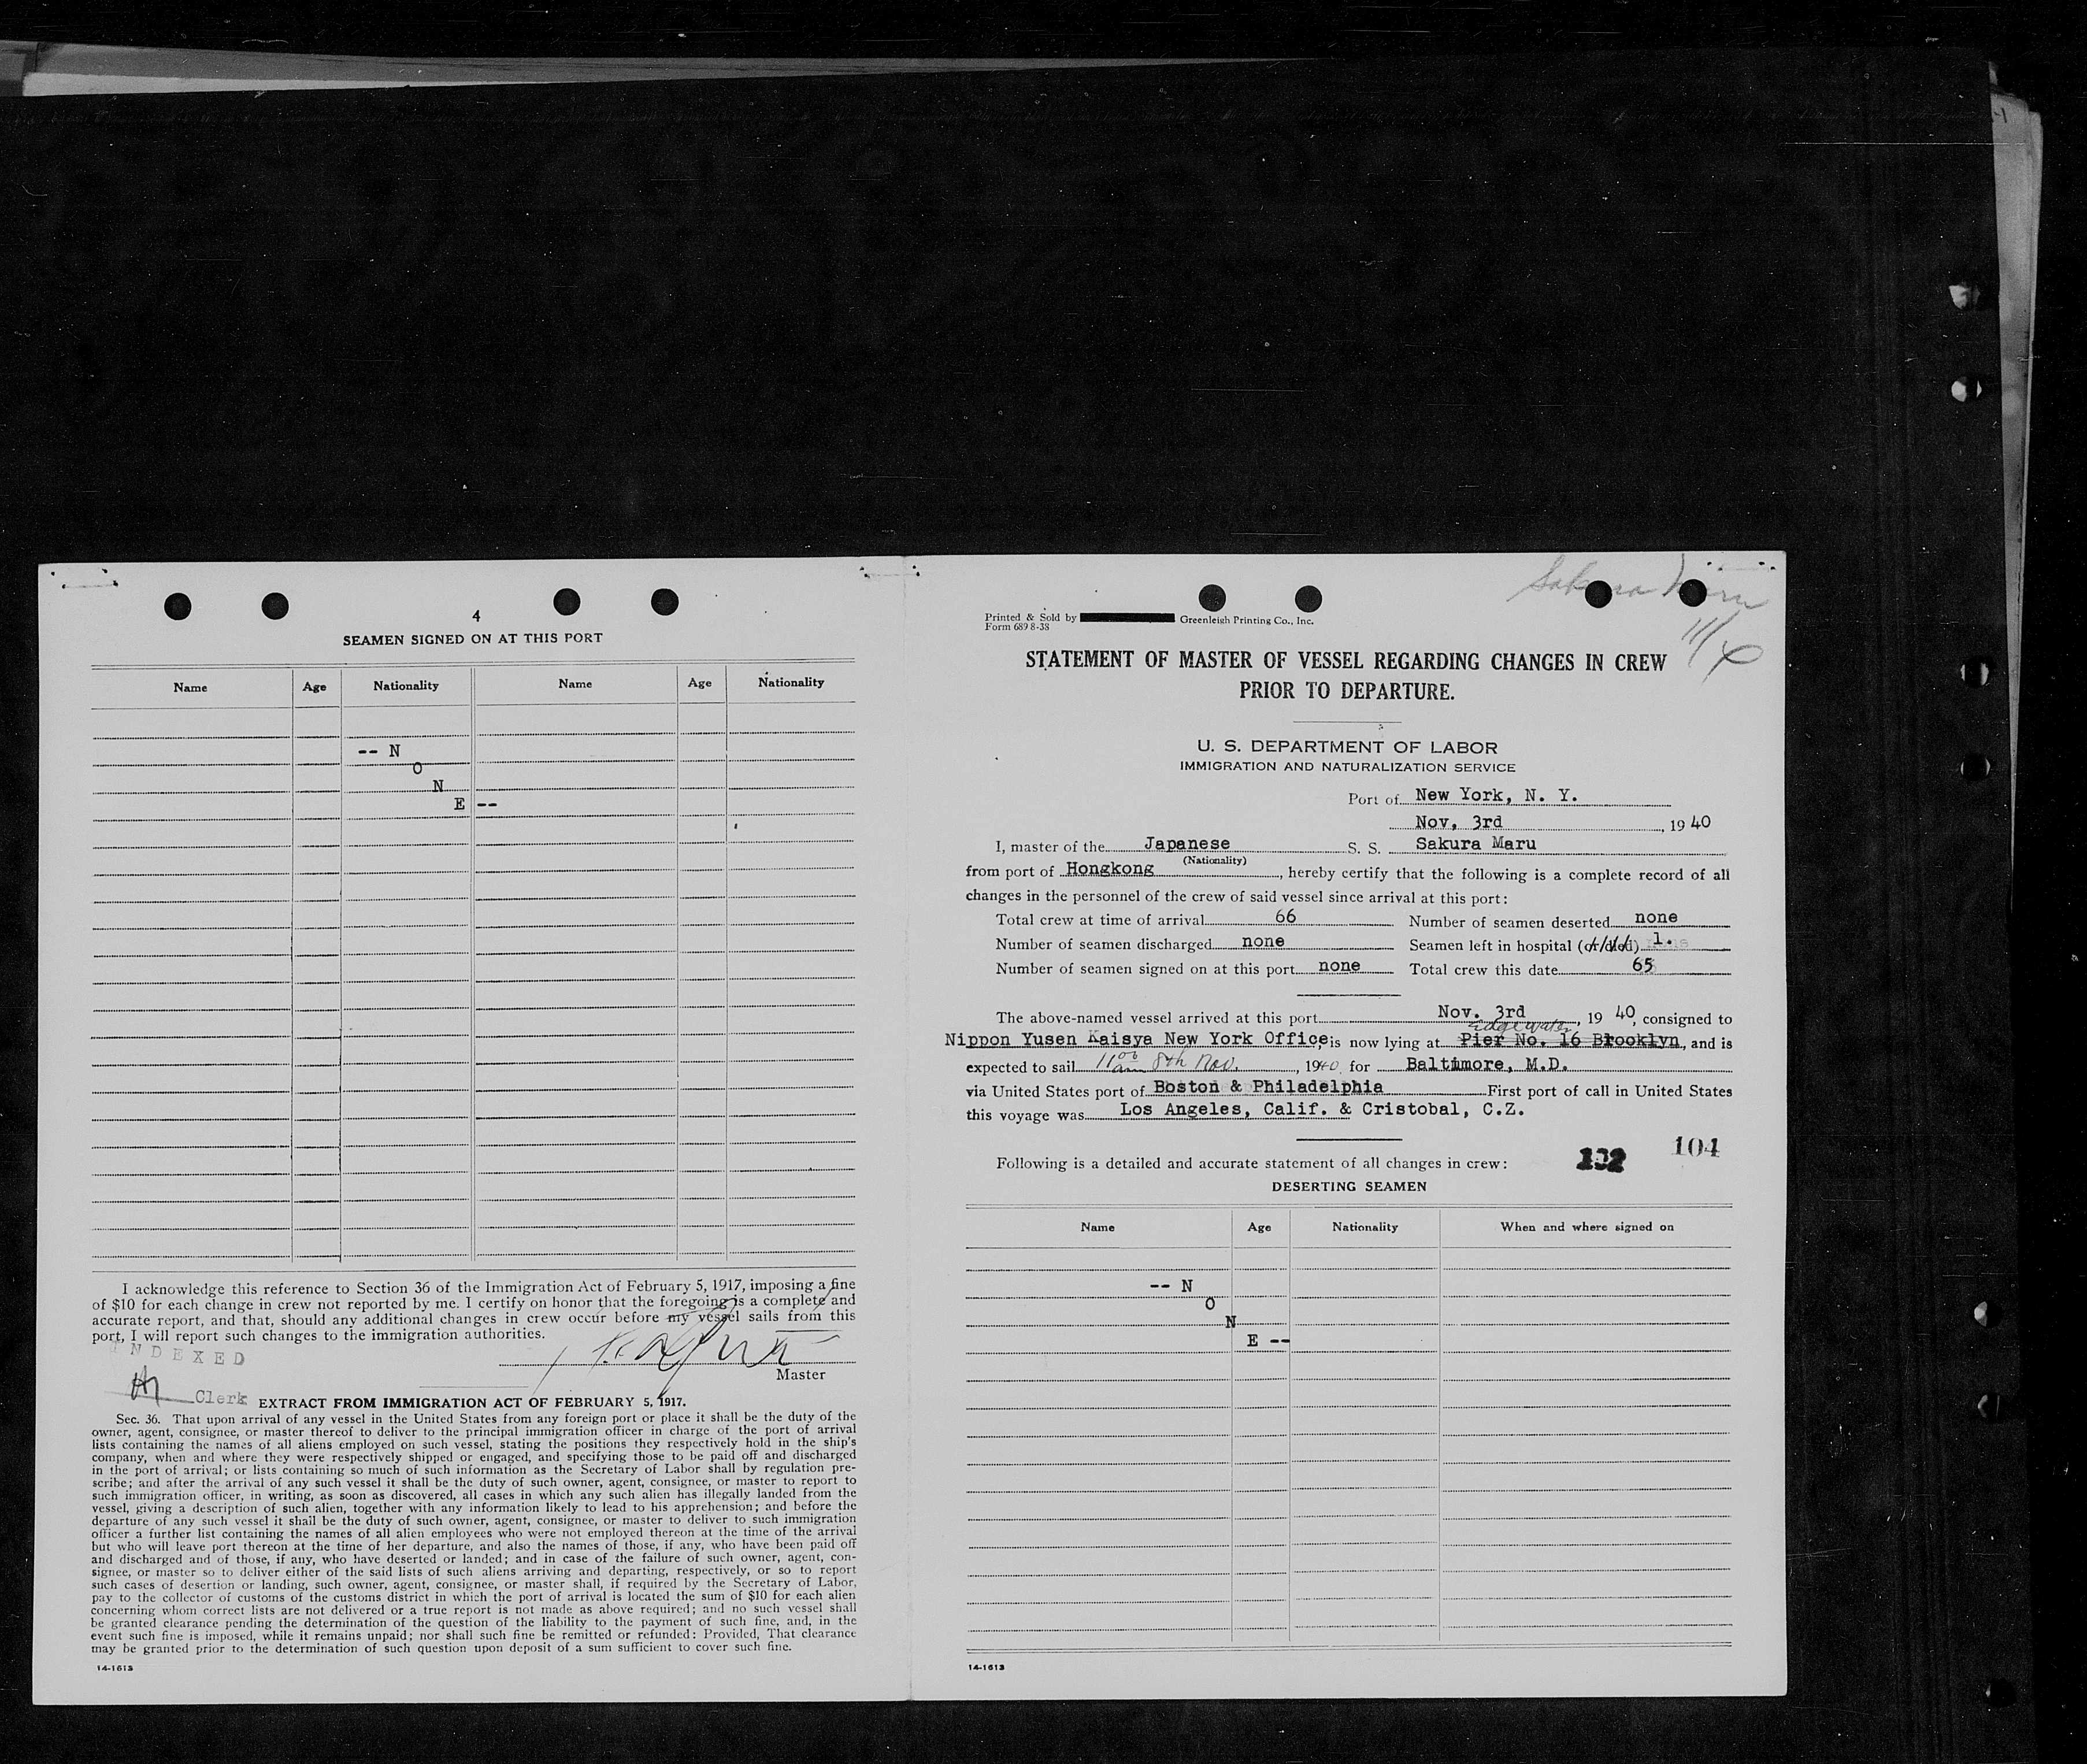 4
SEAMEN SIGNED ON AT THIS PORT
Name Age Nationality Name Age Nationality
-- N
O
N
E --
I acknowledge this reference to Section 36 of the Immigration Act of February 5, 1917, imposing a fine
of $10 for each change in crew not reported by me. I certify on honor that the foregoing is a complete and
accurate report, and that, should any additional changes in crew occur before my vessel sails from this
port, I will report such changes to the immigration authorities.
INDEXED
Master
Clerk
EXTRACT FROM IMMIGRATION ACT OF FEBRUARY 5, 1917.
Sec. 36. That upon arrival of any vessel in the United States from any foreign port or place it shall be the duty of the
owner, agent, consignee, or master thereof to deliver to the principal immigration officer in charge of the port of arrival
lists containing the names of all aliens employed on such vessel, stating the positions they respectively hold in the ship's
company, when and where they were respectively shipped or engaged, and specifying those to be paid off and discharged
in the port of arrival; or lists containing so much of such information as the Secretary of Labor shall by regulation pre-
scribe; and after the arrival of any such vessel it shall be the duty of such owner, agent, consignee, or master to report to
such immigration officer, in writing, as soon as discovered, all cases in which any such alien has illegally landed from the
vessel, giving a description of such alien, together with any information likely to lead to his apprehension; and before the
departure of any such vessel it shall be the duty of such owner, agent, consignee, or master to deliver to such immigration
officer a further list containing the names of all alien employees who were not employed thereon at the time of the arrival
but who will leave port thereon at the time of her departure, and also the names of those, if any, who have been paid off
and discharged and of those, if any, who have deserted or landed; and in case of the failure of such owner, agent, con-
signee, or master so to deliver either of the said lists of such aliens arriving and departing, respectively, or so to report
such cases of desertion or landing, such owner, agent, consignee, or master shall, if required by the Secretary of Labor,
pay to the collector of customs of the customs district in which the port of arrival is located the sum of $10 for each alien
concerning whom correct lists are not delivered or a true report is not made as above required; and no such vessel shall
be granted clearance pending the determination of the question of the liability to the payment of such fine, and, in the
event such fine is imposed, while it remains unpaid; nor shall such fine be remitted or refunded: Provided, That clearance
may be granted prior to the determination of such question upon deposit of a sum sufficient to cover such fine.
14-1613
Sakura Maru
Printed & Sold by Greenleigh Printing Co., Inc.
Form 689 8-38
STATEMENT OF MASTER OF VESSEL REGARDING CHANGES IN CREW
PRIOR TO DEPARTURE.
U. S. DEPARTMENT OF LABOR
IMMIGRATION AND NATURALIZATION SERVICE
Port of New York, N. Y.
Nov, 3rd, 1940
I, master of the Japanese S. S. Sakura Maru
(Nationality)
from port of Hongkong, hereby certify that the following is a complete record of all
changes in the personnel of the crew of said vessel since arrival at this port:
Total crew at time of arrival 66 Number of seamen deserted none
Number of seamen discharged none Seamen left in hospital (or died) 1.
Number of seamen signed on at this port none Total crew this date 65
The above-named vessel arrived at this port Nov. 3rd, 1940, consigned to
Edgewater
Nippon Yusen Kaisya New York Office, is now lying at Pier No. 16 Brooklyn, and is
expected to sail 11 00 am 8th Nov., 1940 for Baltimore, M.D.
via United States port of Boston & Philadelphia First port of call in United States
this voyage was Los Angeles, Calif. & Cristobal, C.Z.
104
Following is a detailed and accurate statement of all changes in crew:
DESERTING SEAMEN
Name Age Nationality When and where signed on
-- N
O
N
E --
14-1613